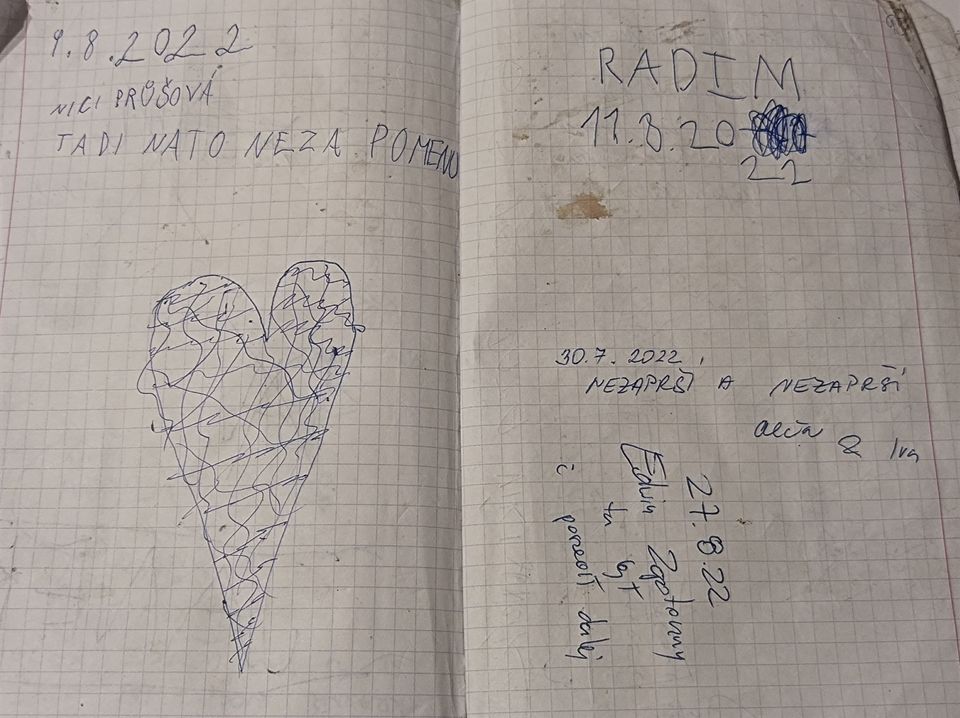 9.8.2022
NICI PRŮŠOVÁ
TADI NATO NEZA POMENU
RADIM
11.8.20
22
30.7.2022.
NEZAPRŠÍ A NEZAPRŠÍ
& Iva
27.8.22
Edvin
tu byt
i dalej